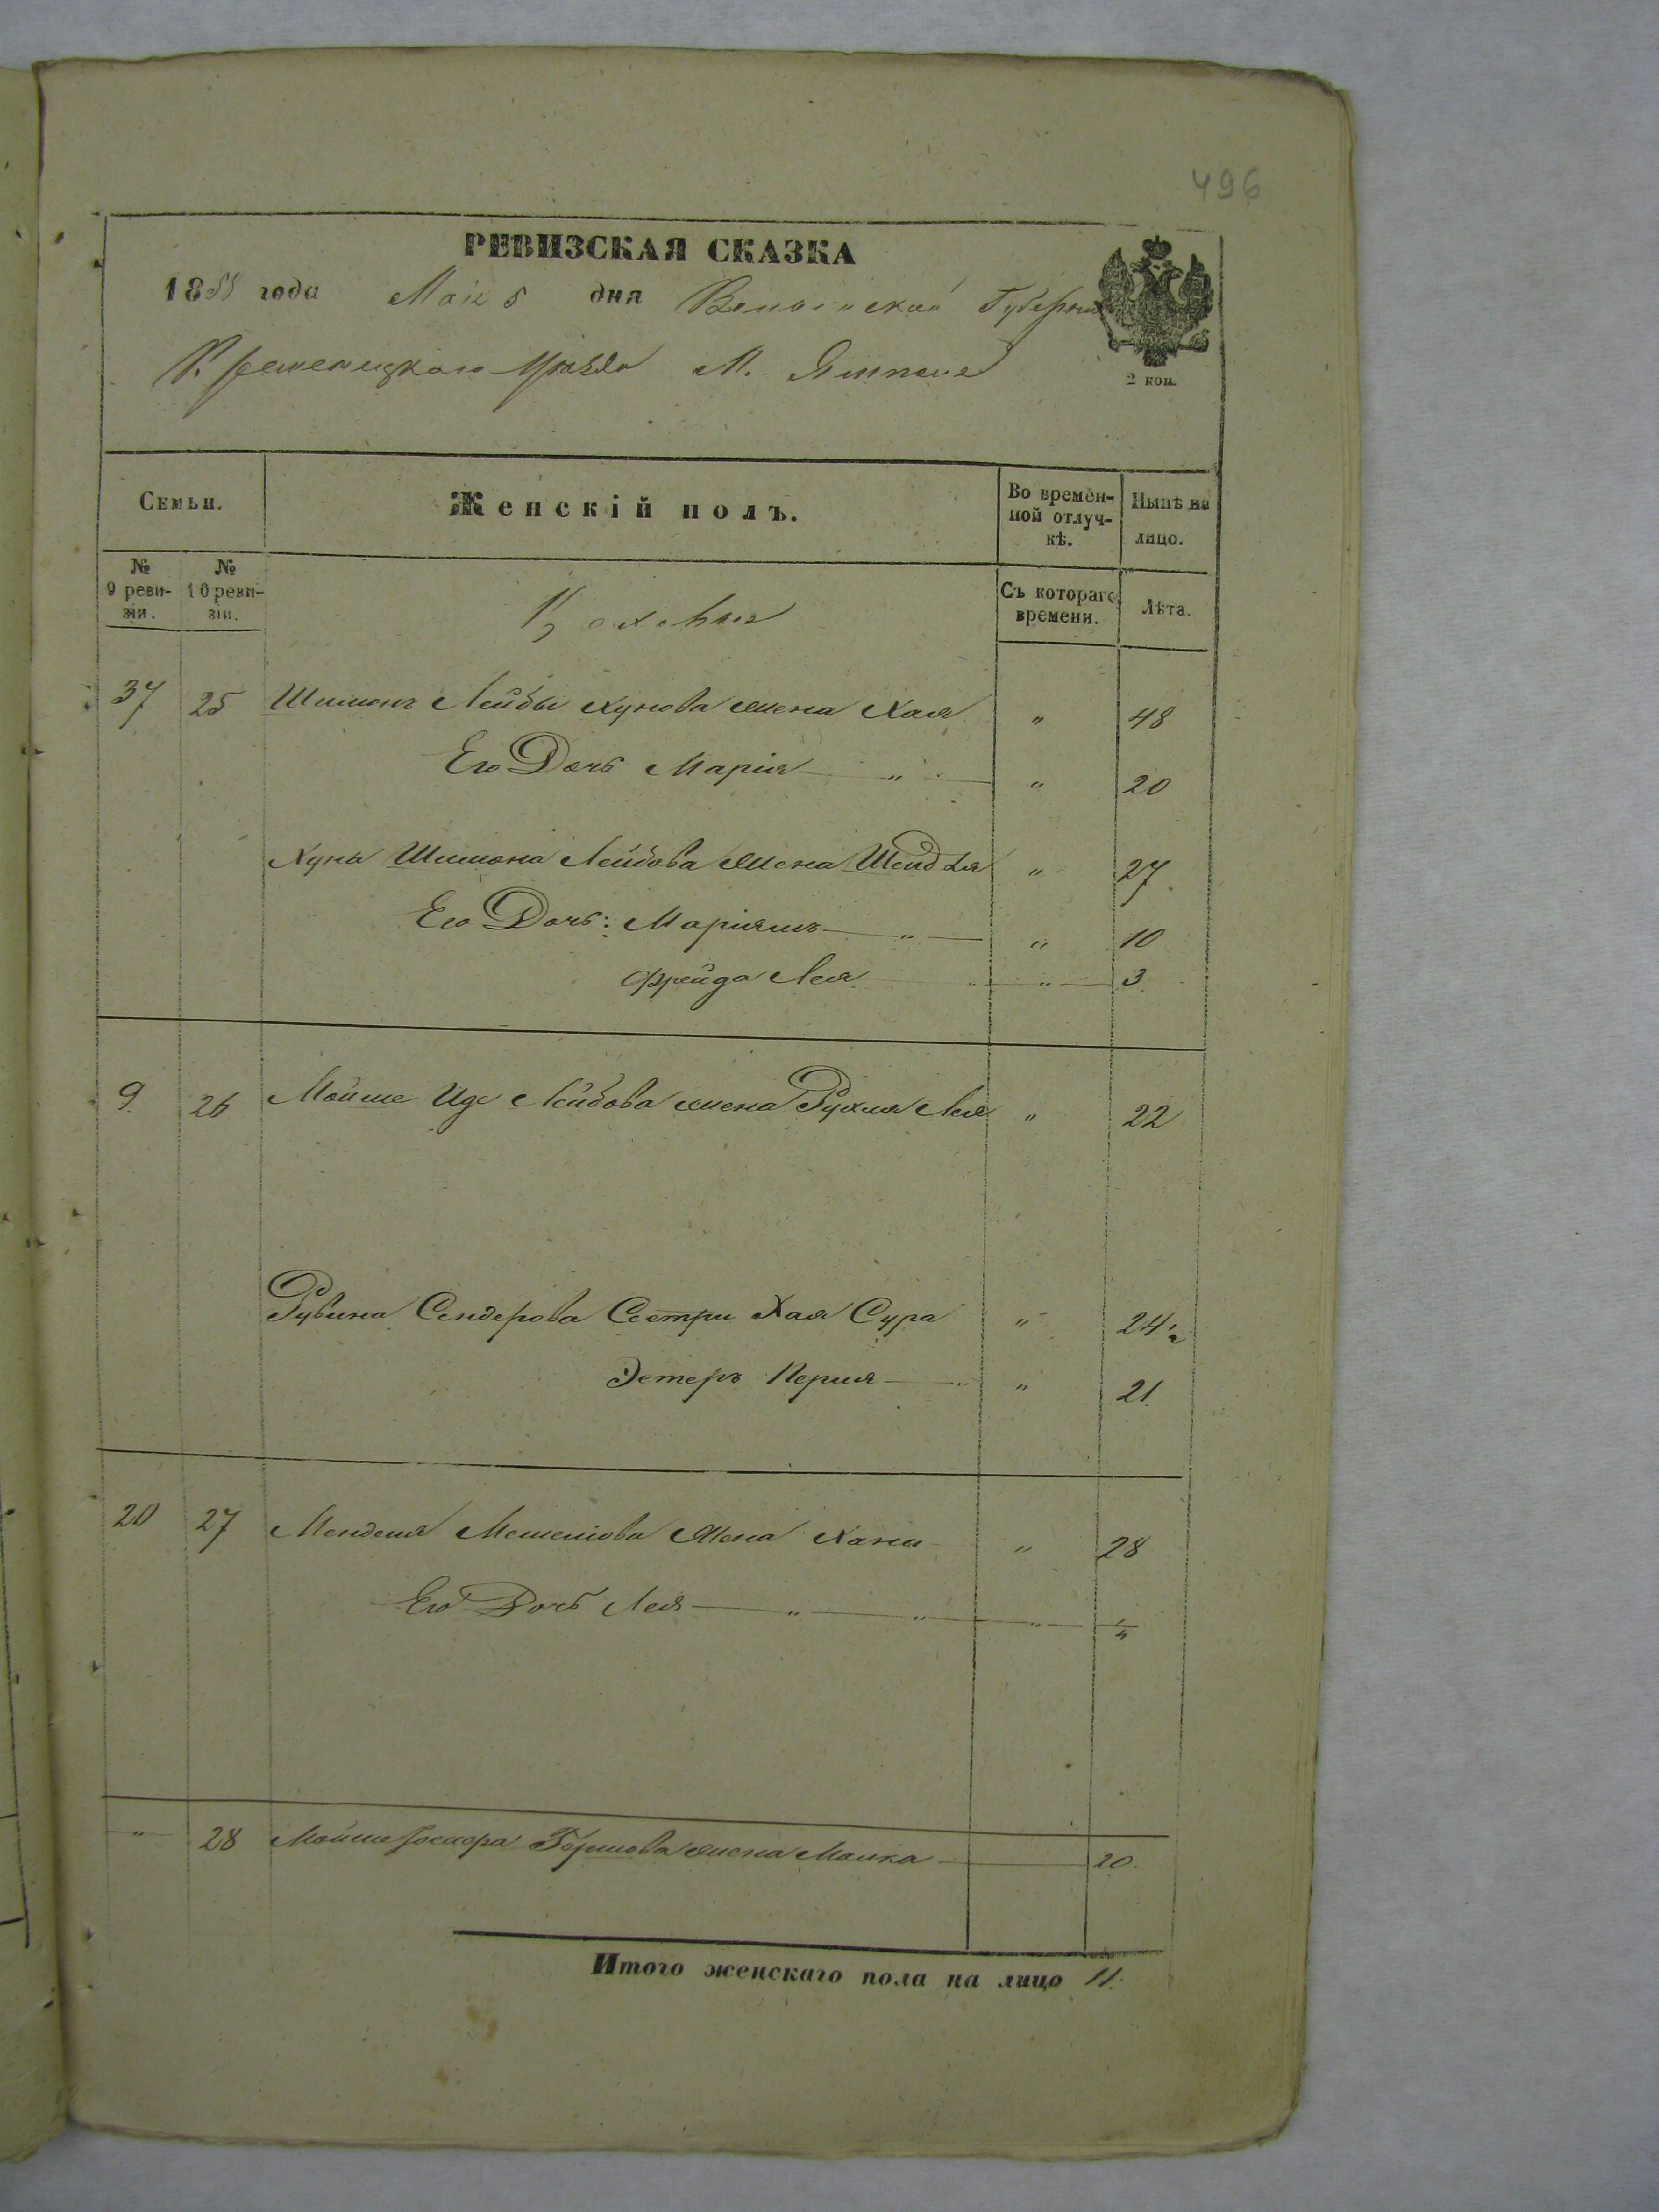 496
РЕВИЗСКАЯ СКАЗКА
1858 года Мая 5 дня Волынской Губернии
Кременецкаго Уѣзда М. Ямполя
2 коп.
Семьи. Женскій полъ. Во времен- Нынѣ на
ной отлуч- лицо.
кѣ.
№ №
9 реви- 10 реви- Съ котораго Лѣта.
зіи. зіи. времени.
37 25 Шимонъ Лейбы Хунова жена Хая " 48
Его Дочь Марія " " 20
Хуны Шимона Лейбова жена Шейдля " 27
Его Дочь: Маріямъ " " 10
Фрейда Лея " " 3
9 26 Мойше Иде Лейбова жена Рухля Лея " 22
Рувина Сендерова Сестры Хая Сура " 24½
Эстеръ Перля " " 21
20 27 Менделя Мошкова жена Хана " 28
Его Дочь Лея " " " "
" 28 Мойше Гершова жена Малка 20.
Итого женскаго пола на лицо 11.